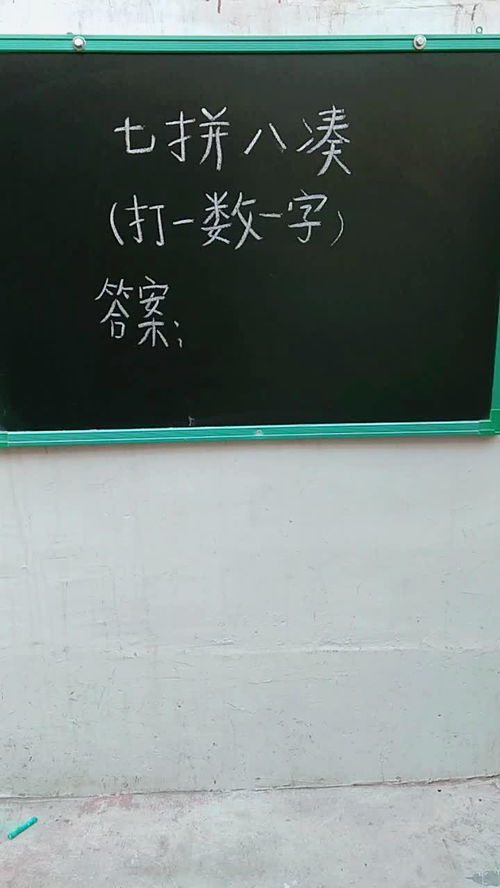 七拼八凑
(打一数一字)
答案;